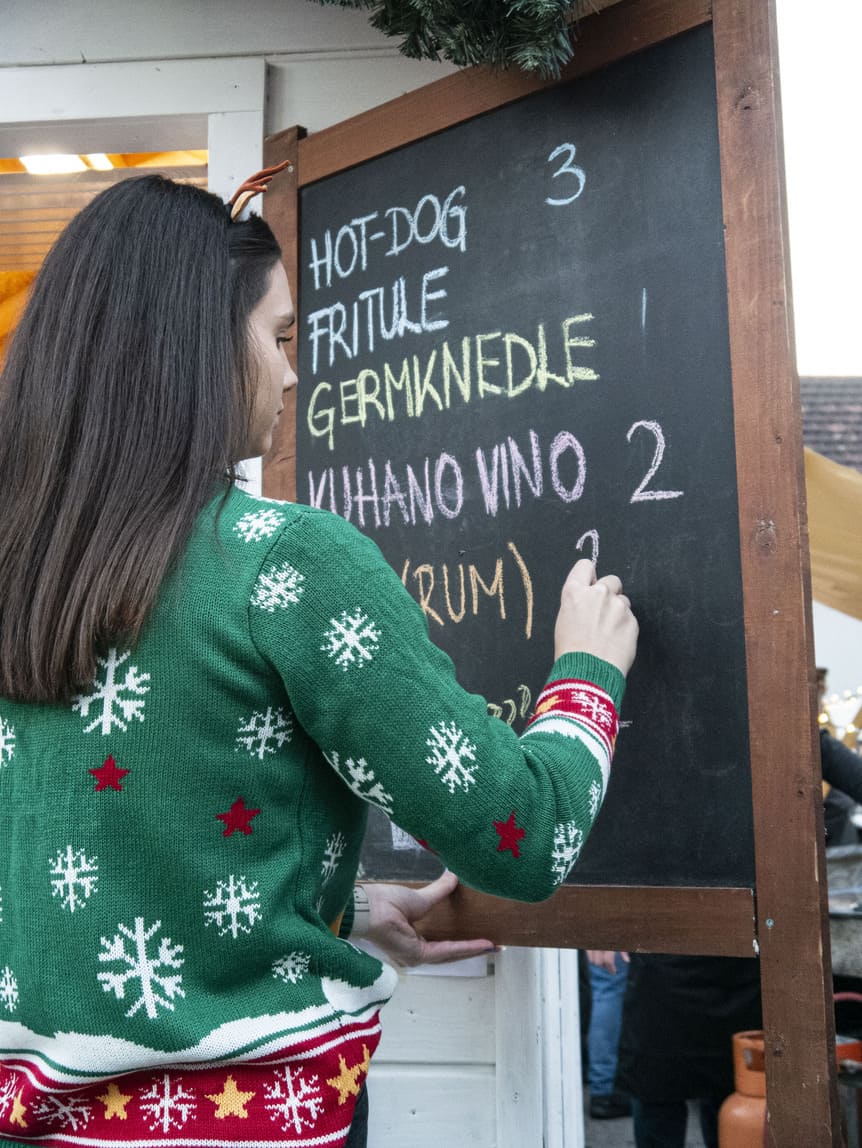 HOT-DOG 3
FRITULE
GERMKNEDLE
KUHANO VINO 2
(RUM)